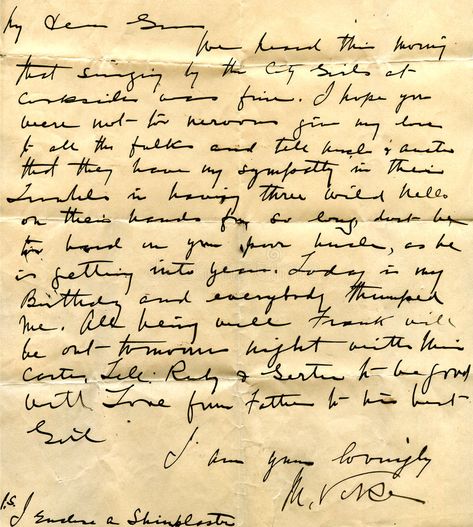 My Dear
We heard this morning
that singing by the City Girls at
was fine. I hope you
were not too nervous give my love
to all the folks and tell uncle & auntie
that they have my sympathy in their
troubles in having three wild
on their hands for so long dont be
too hard on your poor uncle, as he
is getting into years. Today is my
Birthday and everybody thumped
me. All being well Frank will
be out tomorrow night with Miss
Tell Ruby & Gertie to be good
with Love from Father to his best
Girl
I am yours lovingly
M.
P.S.
I Enclose a Shinplaster